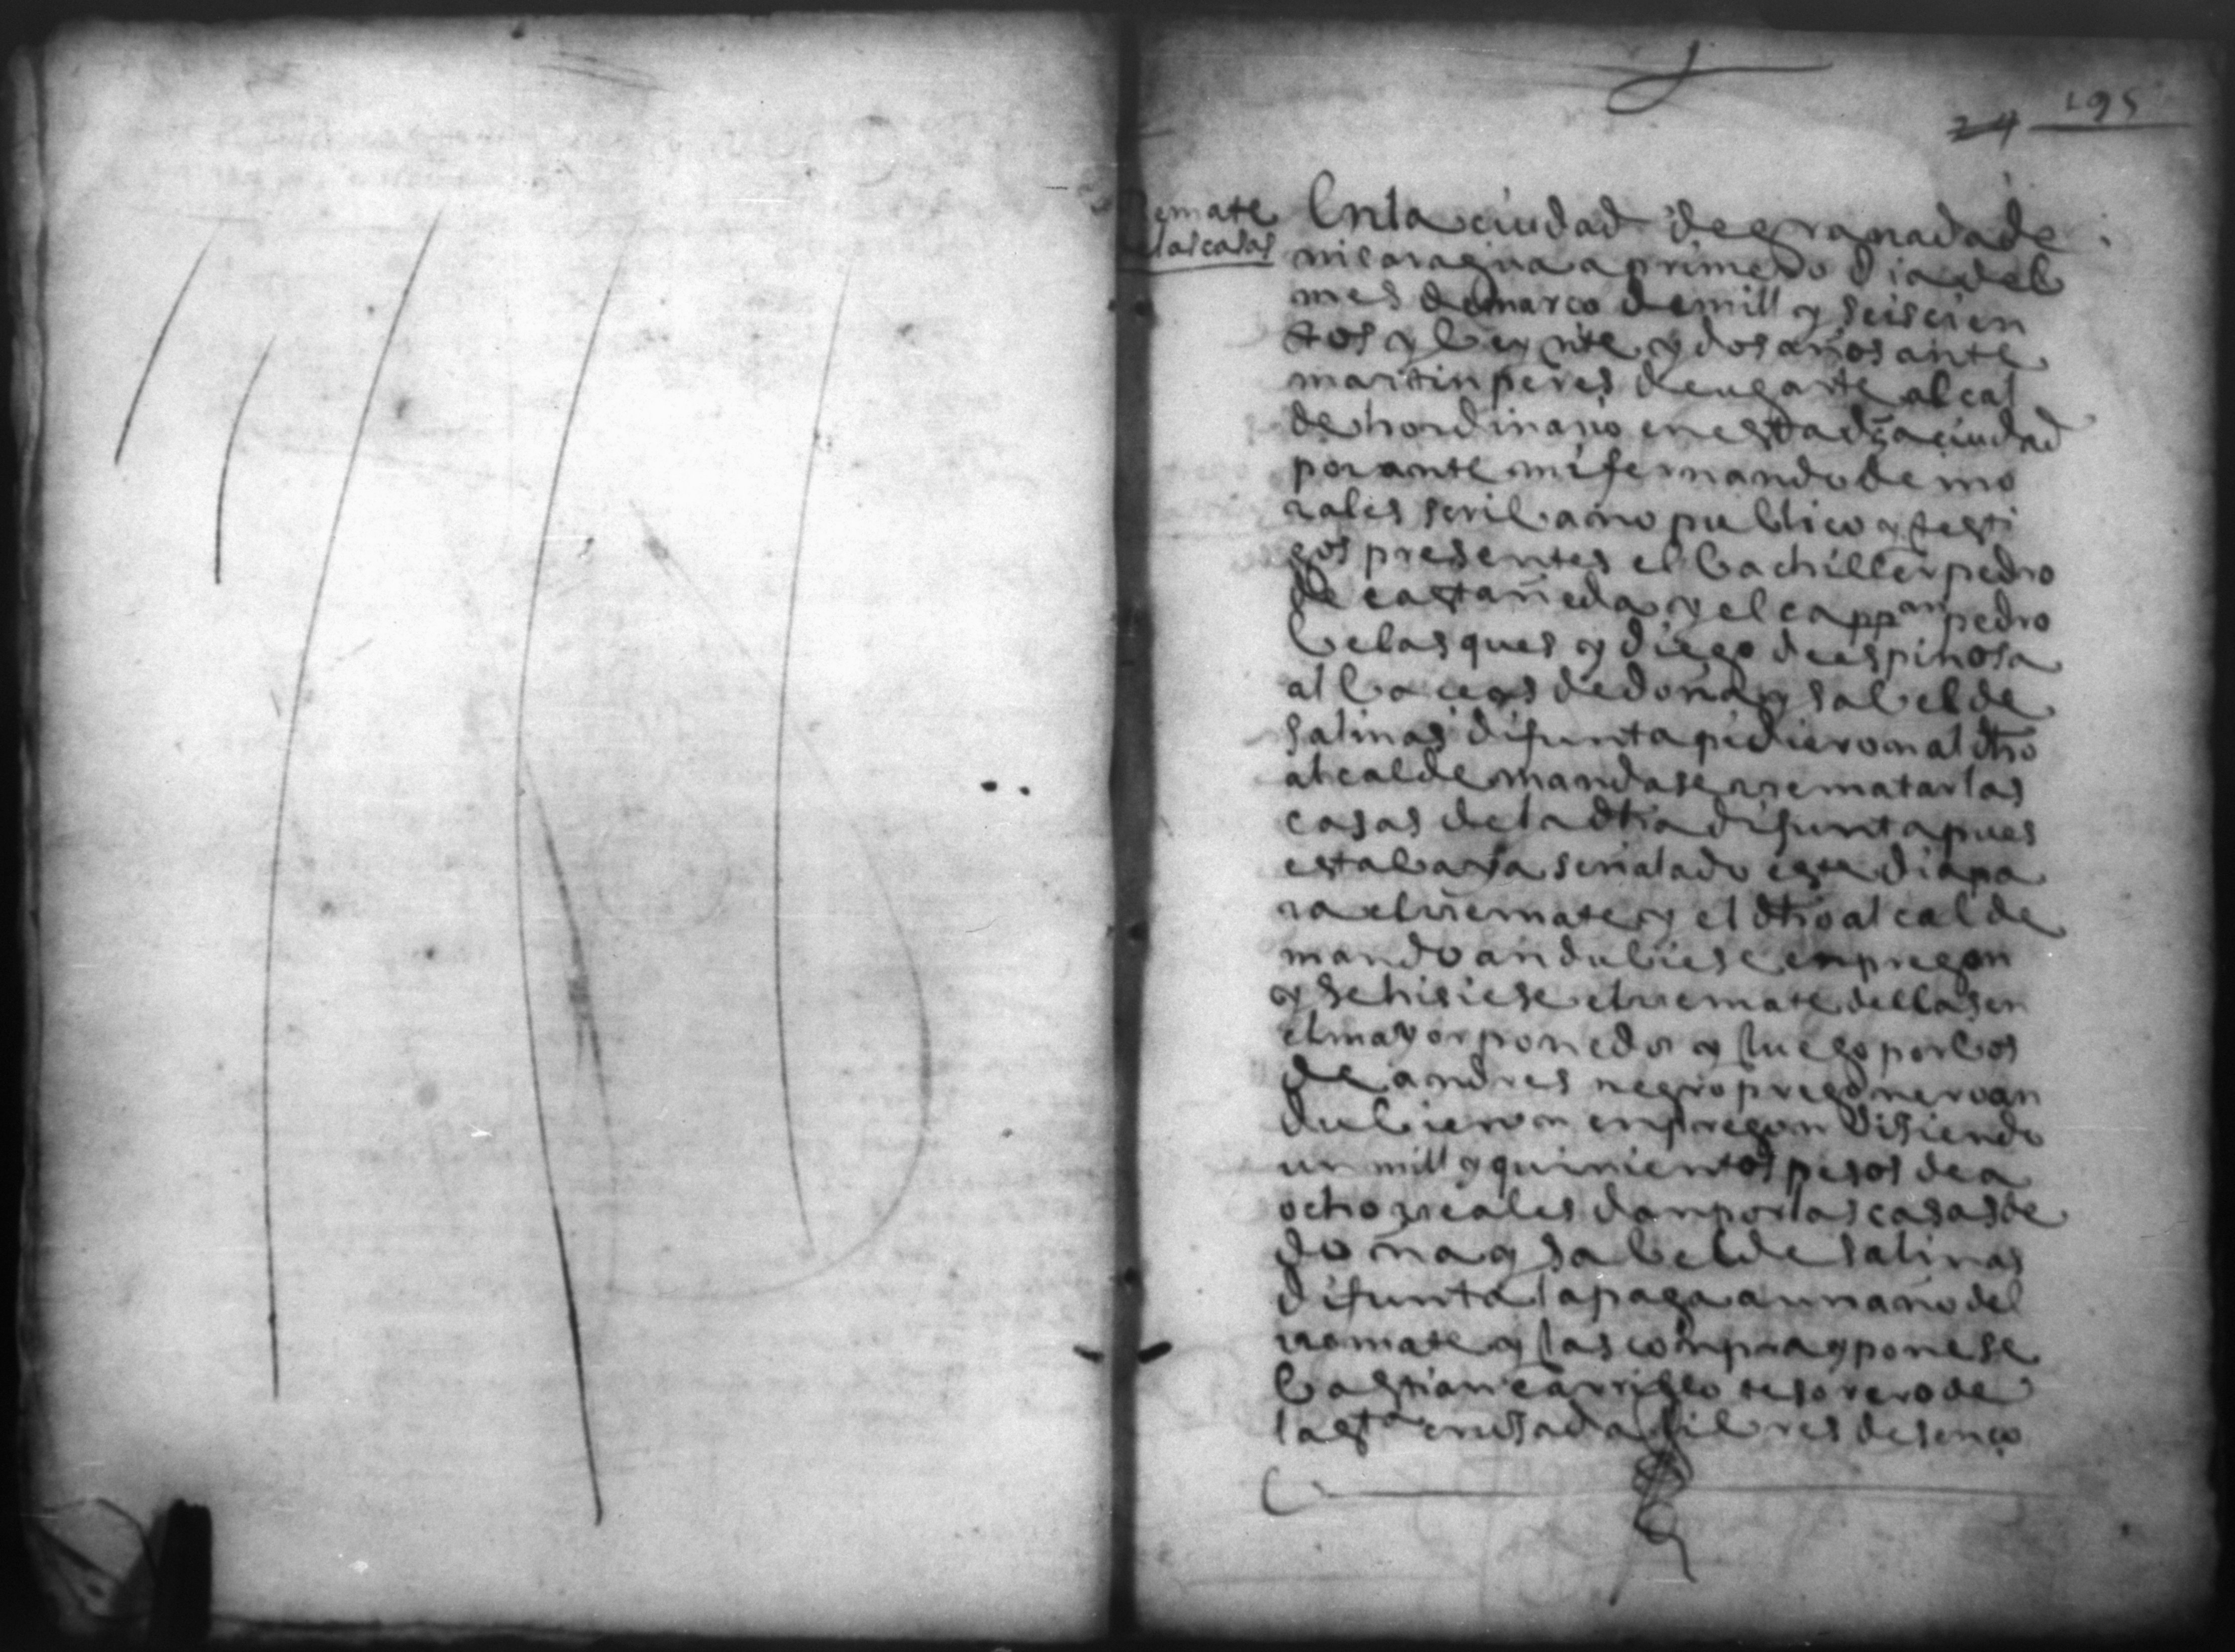 24 195
Remate
las casas
En la ciudad de granada de
nicaragua a primero dia del
mes de março de mill y seiscien
tos y beynte y dos años ante
martin peres de ugarte alcal
de hordinario en esta dha ciudad
por ante mi fernando de mo
rales scribano publico y testi
gos presentes el bachiller pedro
de castañeda y el cappan pedro
belasques y diego de espinosa
albaceas de doña ysabel de
salinas difunta pidieron al dho
alcalde mandase rrematar las
casas de la dha difunta pues
estaba ya señalado este dia pa
ra el rremate y el dho alcalde
mando andubiese en pregon
y se hisiese el rremate dellas en
el mayor ponedor y luego por bos
de andres negro pregonero an
dubieron en pregon disiendo
un mill y quinientos pesos de a
ocho rreales dan por las casas de
doña ysabel de salinas
difunta la paga a un año del
rremate y las compra y pone se
bastian carrillo tesorero de
la sta crusada libres de senço